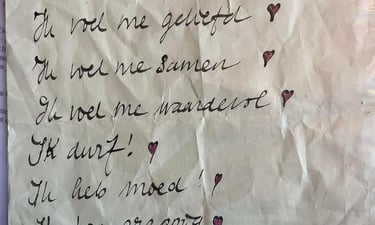 Ik voel me geliefd
Ik voel me samen
Ik voel me waardevol
Ik durf!
Ik heb moed!
Ik ben